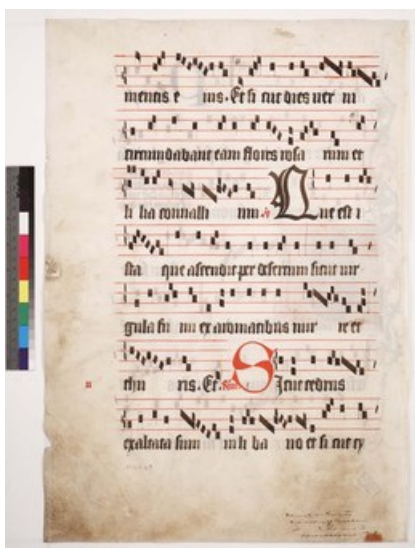 mentis e ius. Et si cut dies uer ni
circumdabant eam flores rosa rum et
li lia conualli um. Que est i
sta que ascendit per desertum sicut uir
gula fu mi ex aromatibus mir re et
thu ris. Et. Sicut cedrus
exaltata sum in li ba no et si cut cy